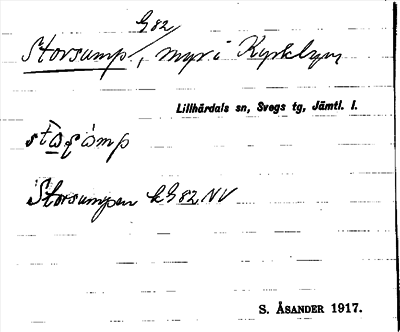 G 82
Storsump, myr i Kyrkbyn
Lillhärdals sn, Svegs tg, Jämtl. l.
Storsumpen kG 82 NV
S. ÅSANDER 1917.